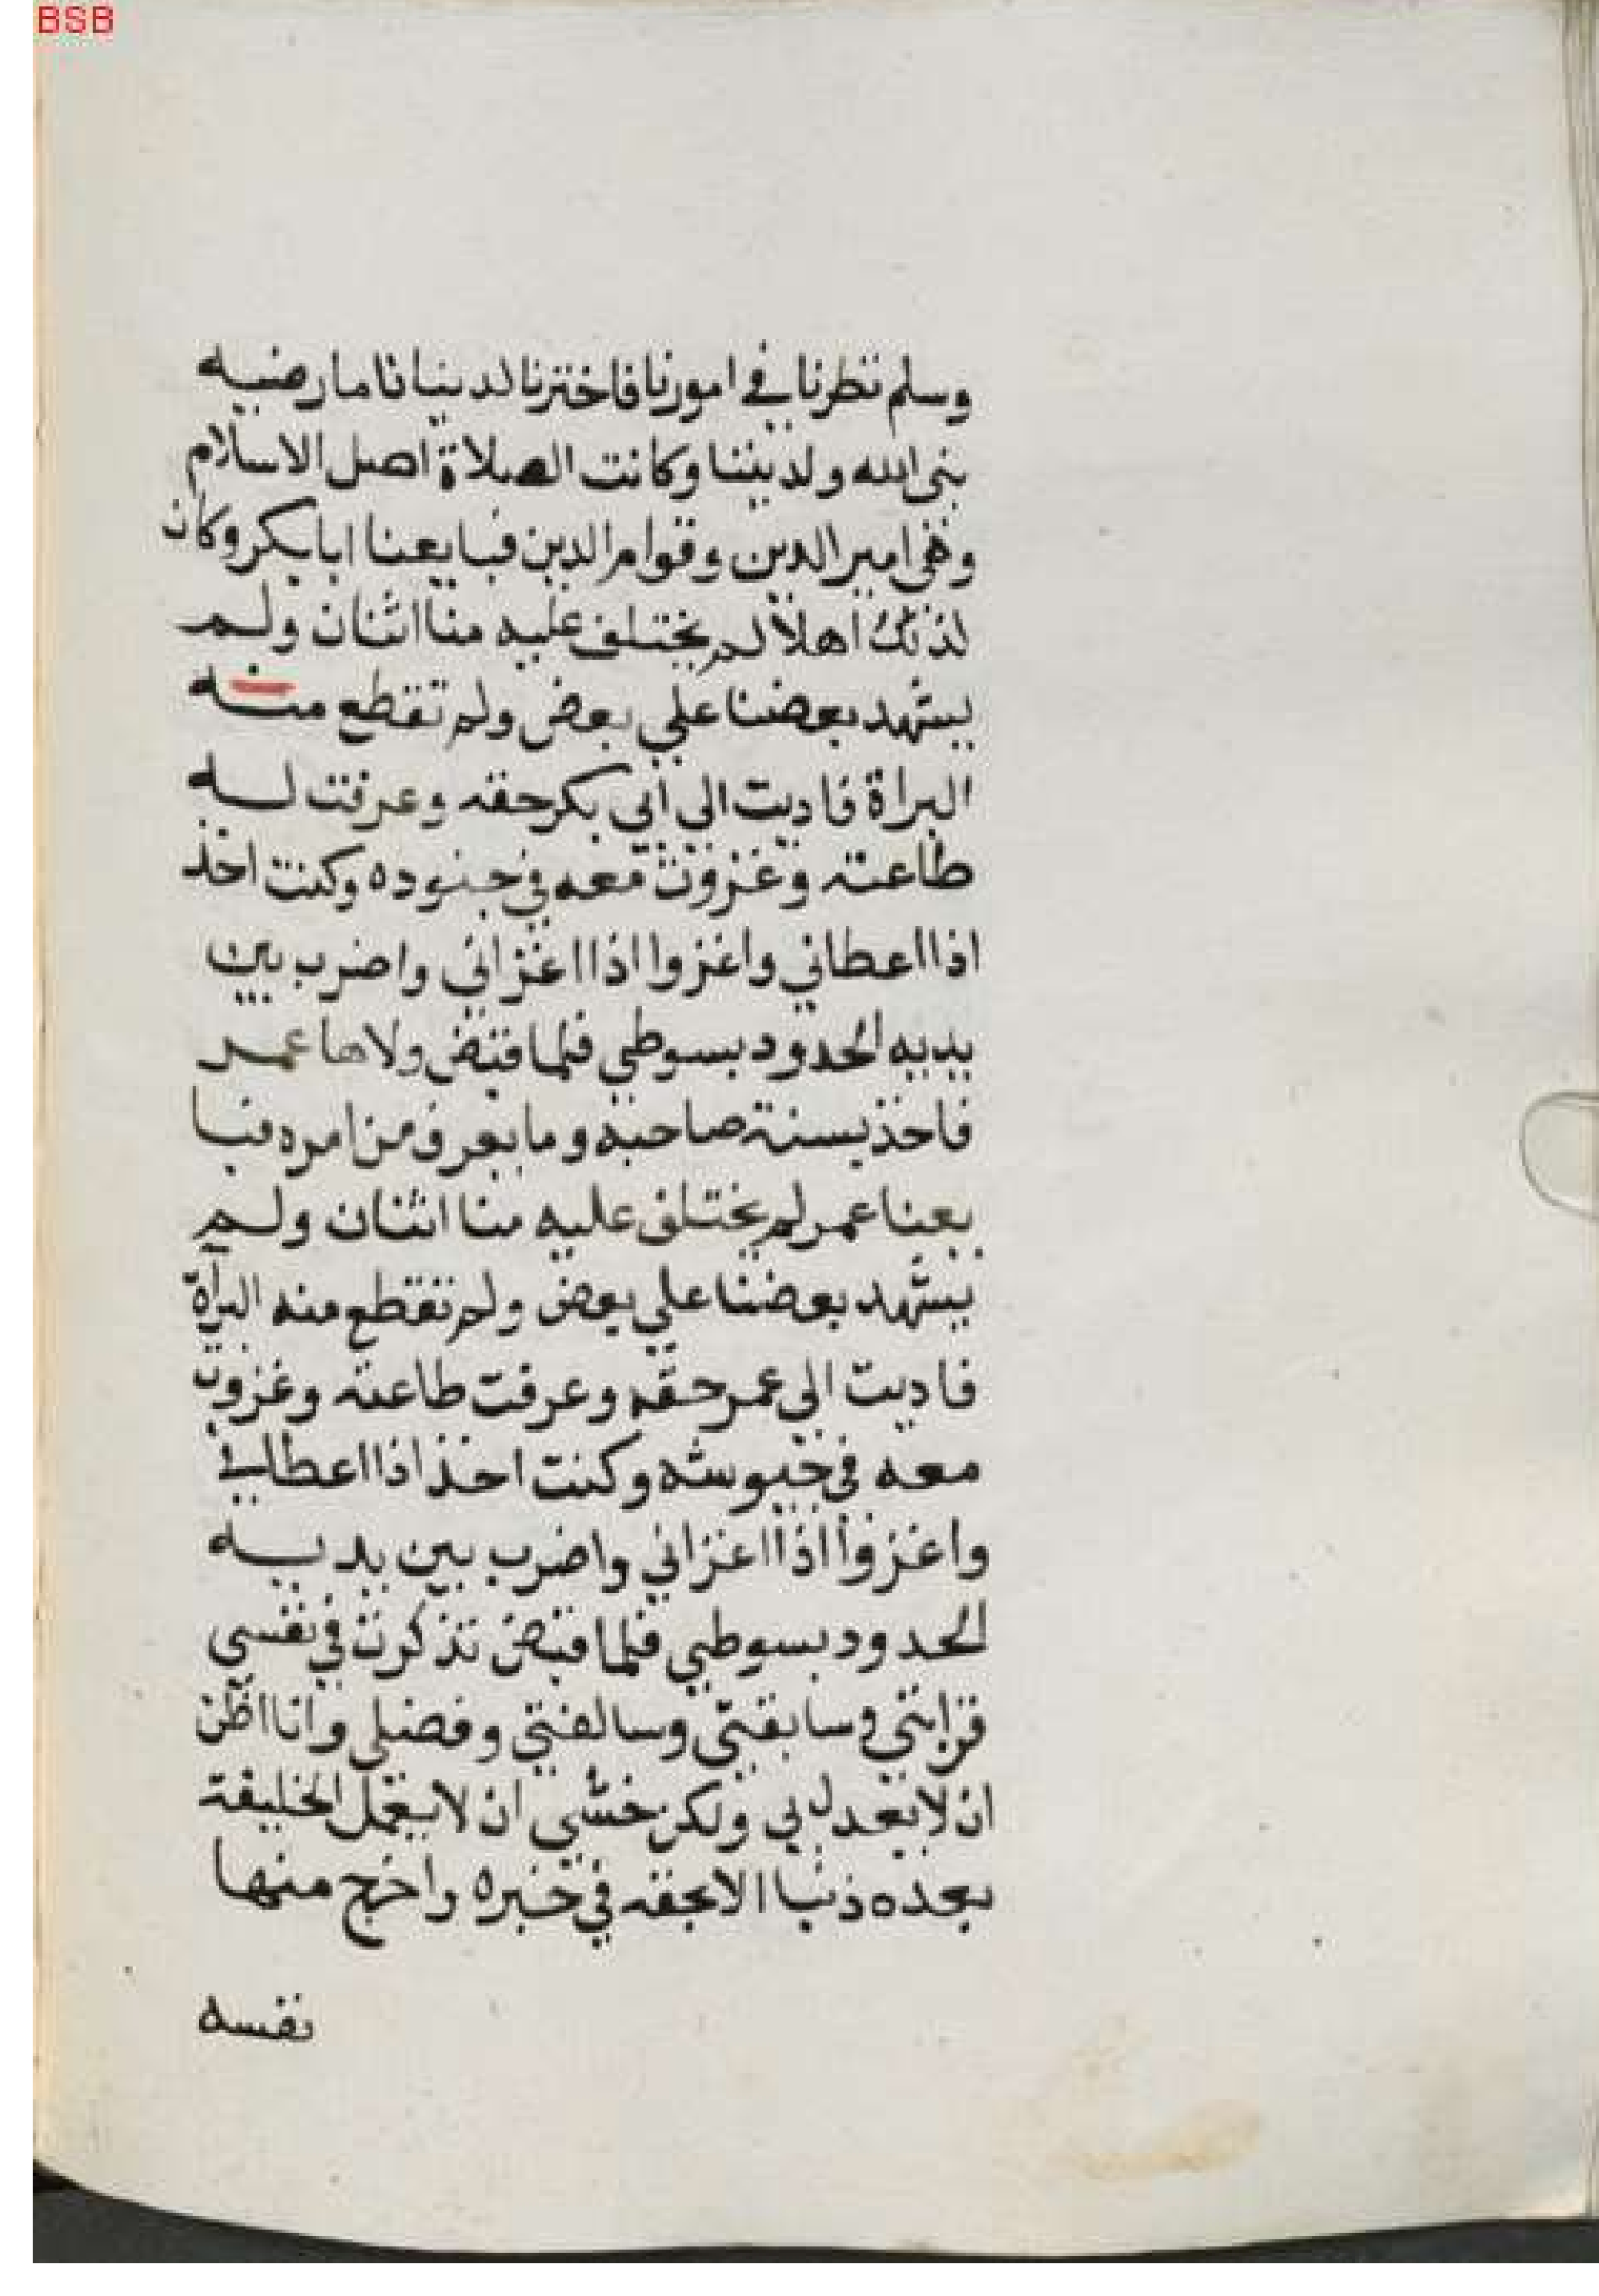 BSB
وسلم نظرنا في امورنا فاخترنا لدنيانا ما رضيه
نبي الله ولديننا وكانت الصلاة اصل الاسلام
وهي امير الدين وقوام الدين فبايعنا ابا بكر وكان
لذلك اهلا لم يختلف عليه منا اثنان ولم
يشهد بعضنا علي بعض ولم تقطع منه
البراة فاديت الى ابي بكر حقه وعرفت له
طاعته وغزوت معه في جنوده وكنت اخذ
اذا اعطاني واغزوا اذا اغزاني واضرب بين
يديه الحدود بسوطي فلما قبض ولاها عمر
فاخذ بسنة صاحبه وما يعرف من امره فبا
يعنا عمر لم يختلف عليه منا اثنان ولم
يشهد بعضنا علي بعض ولم تقطع منه البرآة
فاديت الي عمر حقه وعرفت طاعته وغزوت
معه في جيوشه وكنت اخذ اذا اعطاني
واغزوا اذا اغزاني واضرب بين يديه
الحدود بسوطي فلما قبض تذكرت في نفسي
قرابتي وسابقتي وسالفتي وفضلي وانا اظن
ان لا يعدل بي ولكن خشي ان لا يعمل الخليفة
بعده ذنبا الا لحقه في قبره واخرج منها
نفسه